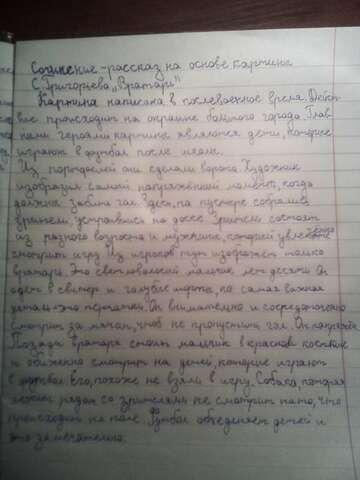 Сочинение-рассказ на основе картины
С. Григорьева „Вратарь"
Картина написана в послевоенное время. Дейст-
вие происходит на окраине большого города. Глав-
ными героями картины являются дети, которые
играют в футбол после школы.
Из портфелей они сделали ворота. Художник
изобразил самый напряжённый момент, когда
должны забить гол. Здесь, на пустыре собрались
зрители, устроились на доске. Зрители состоят
из разного возроста и мужчина, который увлечённо
смотрит игру. Из игроков тут изображёт только
вратарь. Это светловолосый мальчик лет десяти. Он
одет в свитер и голубые шорты, но самая важная
деталь-это перчатки. Он внимательно и сосредоточено
смотрит за мячом, чтоб не пропустить гол. Он напряжён.
Позади вратаря стоит мальчик в красном костюме
и обиженно смотрит на детей, которые играют
в футбол. Его, похоже не взяли в игру. Собака, которая
лежит рядом со зрителями не смотрит на то, что
происходит на поле. Футбол объеденяет детей и
это замечательно.